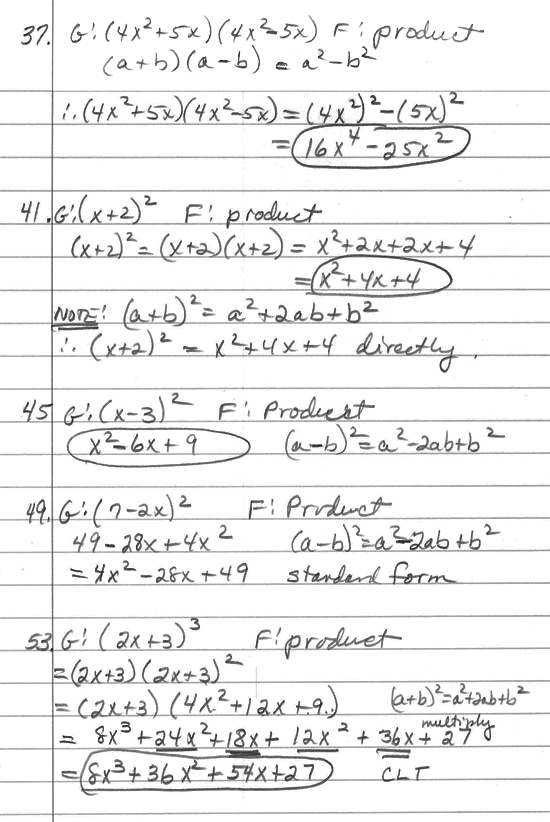 37. G: (4x²+5x)(4x²-5x) F: product
(a+b)(a-b) = a²-b²
∴ (4x²+5x)(4x²-5x) = (4x²)²-(5x)²
= 16x⁴-25x²
41. G: (x+2)² F: product
(x+2)² = (x+2)(x+2) = x²+2x+2x+4
= x²+4x+4
NOTE: (a+b)² = a²+2ab+b²
∴ (x+2)² = x²+4x+4 directly.
45 G: (x-3)² F: Product
x²-6x+9 (a-b)²=a²-2ab+b²
49. G: (7-2x)² F: Product
49-28x+4x² (a-b)²=a²-2ab+b²
= 4x²-28x+49 standard form
53. G: (2x+3)³ F: product
=(2x+3)(2x+3)²
= (2x+3)(4x²+12x+9) (a+b)²=a²+2ab+b²
multiply
= 8x³+24x²+18x+12x²+36x+27
= 8x³+36x²+54x+27 CLT